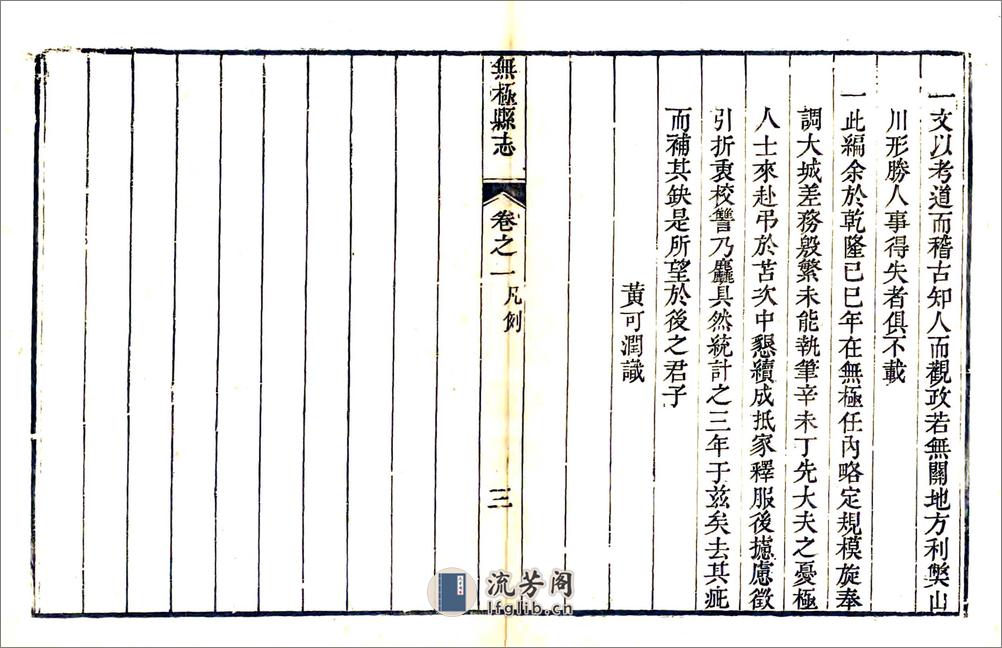 一文以考道而稽古知人而觀政若無關地方利獘山
川形勝人事得失者俱不載
一此編余於乾隆己巳年在無極任內略定規模旋奉
調大城差務殷繁未能執筆辛未丁先大夫之憂極
人士來赴弔於苫次中懇續成抵家釋服後攄慮徵
引折衷校讐乃麤具然統計之三年于兹矣去其疵
而補其缺是所望於後之君子
黃可潤識
無極縣志
卷之一
凡例
三
流芳阁
lfglib.cn